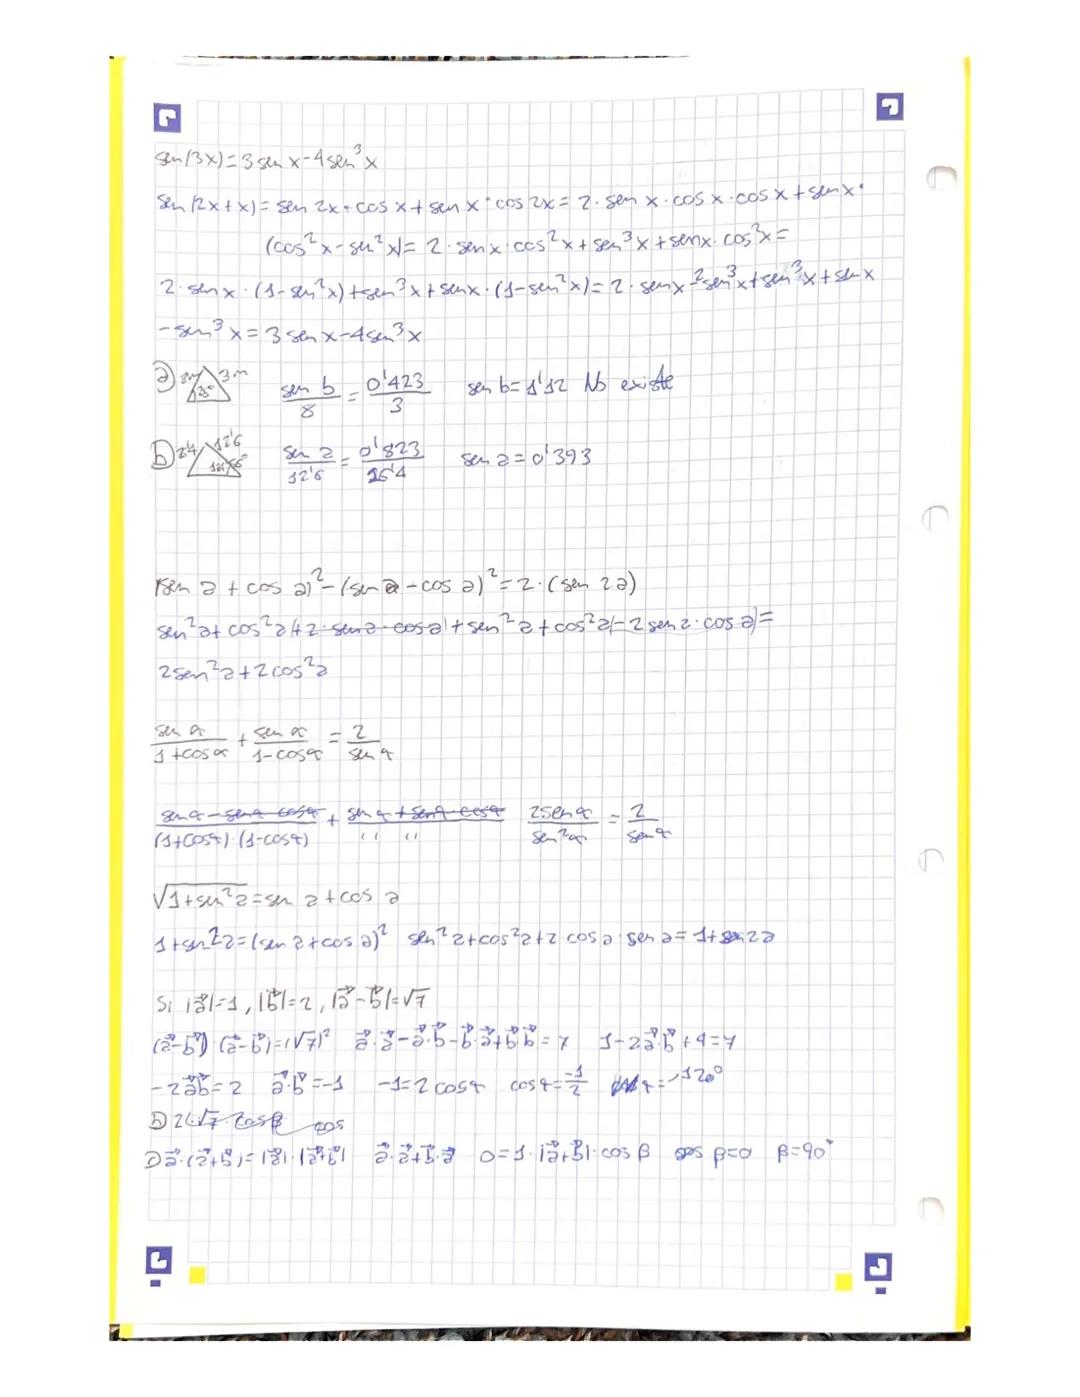 sen(3x)=3sen x-4sen³x
sen(2x+x)= sen 2x·cos x+sen x·cos 2x= 2·sen x·cos x·cos x+sen x·
(cos²x-sen²x)= 2·senx·cos²x+sen³x+senx·cos²x=
2·senx·(1-sen²x)+sen³x+senx·(1-sen²x)=2·senx-2sen³x+sen³x+senx
-sen³x=3senx-4sen³x
a) 8m 3m 25° sen b/8 = 0'423/3 sen b=1'12 No existe
b) 12'6 sen a/12'6 = 0'823/26'4 sen a=0'393
(sen a + cos a)²-(sen a-cos a)²=2·(sen 2a)
sen²a+cos²a+2·sena·cosa+sen²a+cos²a-2sena·cosa=
2sen²a+2cos²a
sen α/1+cosα + sen α/1-cosα = 2/sen α
senα-senα cosα/(1+cosα)·(1-cosα) + senα+senα cosα/" " 2senα/sen²α = 2/senα
√1+sen²a=sen a+cos a
1+sen²a=(sen a+cos a)² sen²a+cos²a+2·cosa·sen a=1+sen2a
Si |a⃗|=1, |b⃗|=2, |a⃗-b⃗|=√7
(a⃗-b⃗)·(a⃗-b⃗)=(√7)² a⃗·a⃗-a⃗·b⃗-b⃗·a⃗+b⃗b⃗=7 1-2a⃗·b⃗+4=7
-2a⃗b⃗=2 a⃗·b⃗=-1 -1=2cosα cosα=-1/2 α=120°
b) 2·√7·cosβ cos
a⃗·(a⃗+b⃗)=|a⃗|·|a⃗+b⃗| a⃗·a⃗+b⃗·a⃗ 0=1·|a⃗+b⃗|·cosβ cos β=0 β=90°